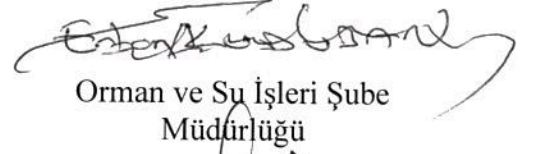 Orman ve Su İşleri Şube
Müdürlüğü